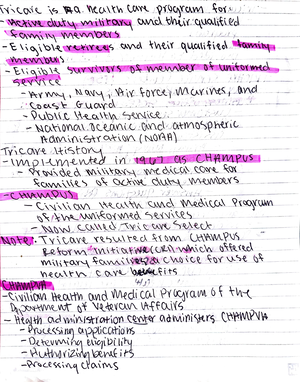 Tricare is a health care program for
- Active duty military and their qualified
family members
- Eligible retirees and their qualified family
members
- Eligible survivors of member of uniformed
service
- Army, Navy, Air force, Marines, and
Coast Guard
- Public Health Service
- National Oceanic and atmospheric
Administration (NOAA)
Tricare History
- Implemented in 1967 as CHAMPUS
- Provided military medical care for
families of active duty members
- CHAMPUS
- Civilian Health and Medical Program
of the uniformed services
- Now called Tricare Select
Note: Tricare resulted from CHAMPUS
Reform Initiative (CRI) which offered
military families a choice for use of
health care benefits
CHAMPVA
- Civilian Health and Medical Program of the
Department of Veteran Affairs
- Health administration center administers CHAMPVA
- Processing applications
- Determining eligibility
- Authorizing benefits
- Processing claims